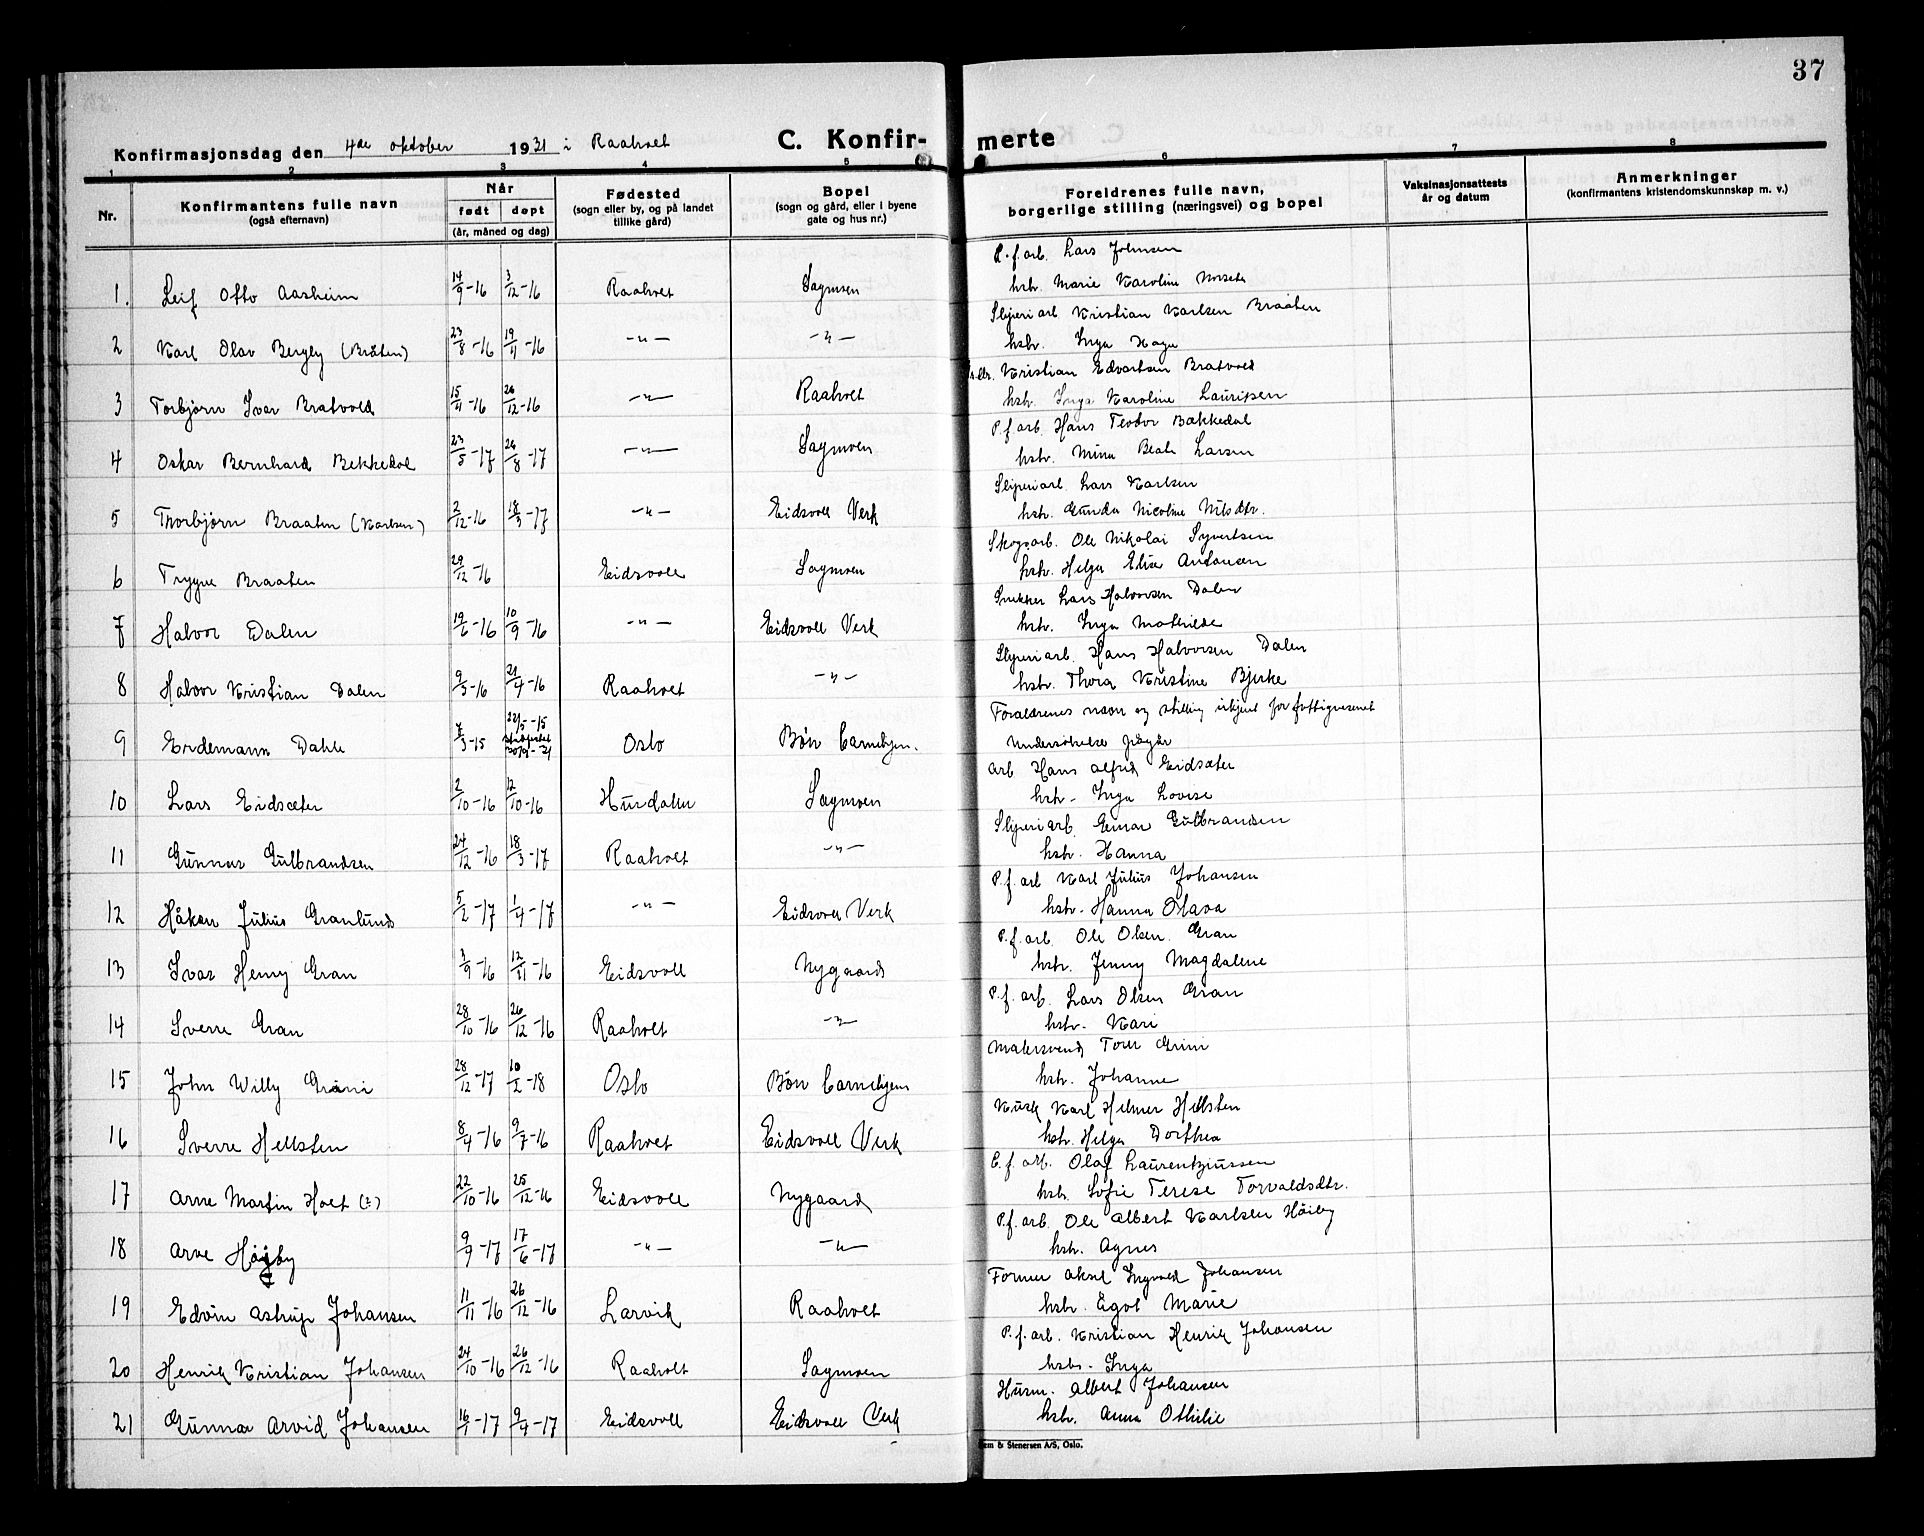 37
Konfirmasjonsdag den 4de oktober 1931 i Raaholt
C. Konfirmerte
1 2 3 4 5 6 7 8
Nr. Konfirmantens fulle navn (også efternavn) Når født døpt (år, måned og dag) Fødested (sogn eller by, og på landet tillike gård) Bopel (sogn og gård, eller i byene gate og hus nr.) Foreldrenes fulle navn, borgerlige stilling (næringsvei) og bopel Vaksinasjonsattests år og datum Anmerkninger (konfirmantens kristendomskunnskap m. v.)
P.f.arb. Lars Johnsen
1. Leif Otto Aasheim 14/9-16 3/12-16 Raaholt Sagmoen hstr. Marie Karoline Norseth
Sliperiarb. Kristian Karlsen Braaten
2 Karl Olav Bergby (Bråten) 23/8-16 19/11-16 -"- -"- hstr. Inga Haga
Kristian Edvartsen Bratvold
3 Torbjørn Ivar Bratvold 15/11-16 26/12-16 -"- Raaholt hstr. Inga Karoline Lauritsen
P.f.arb. Hans Teodor Bækkedal
4 Oskar Bernhard Bekkedal 23/5-17 26/8-17 -"- Sagmoen hstr. Mina Beate Larsen
Sliperiarb. Lars Karlsen
5 Thorbjørn Braaten (Karlsen) 2/12-16 18/3-17 -"- Eidsvoll Verk hstr. Gunda Nicoline Nilsdtr.
Skogsarb. Ole Nikolai Syvertsen
6 Trygve Braaten 29/12-16 Eidsvoll Sagmoen hstr. Helga Elise Antonsen
Snekker Lars Halvorsen Dalen
7 Halvor Dalen 19/6-16 10/9-16 -"- Eidsvoll Verk hstr. Inga Mathilde
Sliperiarb. Hans Halvorsen Dalen
8 Halvor Kristian Dalen 9/3-16 24/4-16 Raaholt -"- hstr. Thora Kristine Bjerke
Foreldrenes navn og stilling ukjent for fattigvesenet
9 Erdemann Dahle 7/3-15 22/5-15 Oslo Bøn barnehjem. undersøkelse pågår
Arb Hans Alfred Eidsæter
10 Lars Eidsæter 2/10-16 12/10-16 Hurdalen Sagmoen hstr. Inga Lovise
Sliperiarb. Einar Gulbrandsen
11 Gunnar Gulbrandsen 24/12-16 18/3-17 Raaholt -"- hstr. Hanna
P.f.arb Karl Julius Johansen
12 Håkon Julius Granlund 5/2-17 1/4-17 -"- Eidsvoll Verk hstr. Hanna Olava
P.f.arb. Ole Olsen Gran
13 Ivar Henry Gran 3/9-16 12/11-16 Eidsvoll Nygaard hstr. Jenny Magdalene
P.f.arb. Lars Olsen Gran
14 Sverre Gran 28/10-16 26/12-16 Raaholt -"- hstr. Kari
Malersvend Tore Grini
15 John Willy Grini 28/12-17 10/2-18 Oslo Bøn barnehjem hstr. Johanne
Kusk Karl Helmer Hellsten
16 Sverre Hellsten 8/4-16 9/7-16 Raaholt Eidsvoll Verk hstr. Helga Dorthea
E.f.arb. Olaf Laurentziussen
17 Arne Martin Holt 22/10-16 25/12-16 Eidsvoll Nygaard hstr. Sofie Terese Torvaldsdtr.
P.f.arb. Ole Albert Karlsen Høiby
18 Arve Høiby 9/9-17 17/6-17 -"- -"- hstr. Agnes
Former Aksel Ingvald Johansen
19 Edvin Astrup Johansen 11/11-16 26/12-16 Larvik Raaholt hstr. Egot Marie
P.f.arb. Kristian Henrik Johansen
20 Henrik Kristian Johansen 24/10-16 26/12-16 Raaholt Sagmoen hstr. Inga
Husm. Albert Johansen
21 Gunnar Arvid Johansen 16/1-17 9/4-17 Eidsvoll Eidsvoll Verk hstr. Anna Othilie
& Stenersen A/S, Oslo.